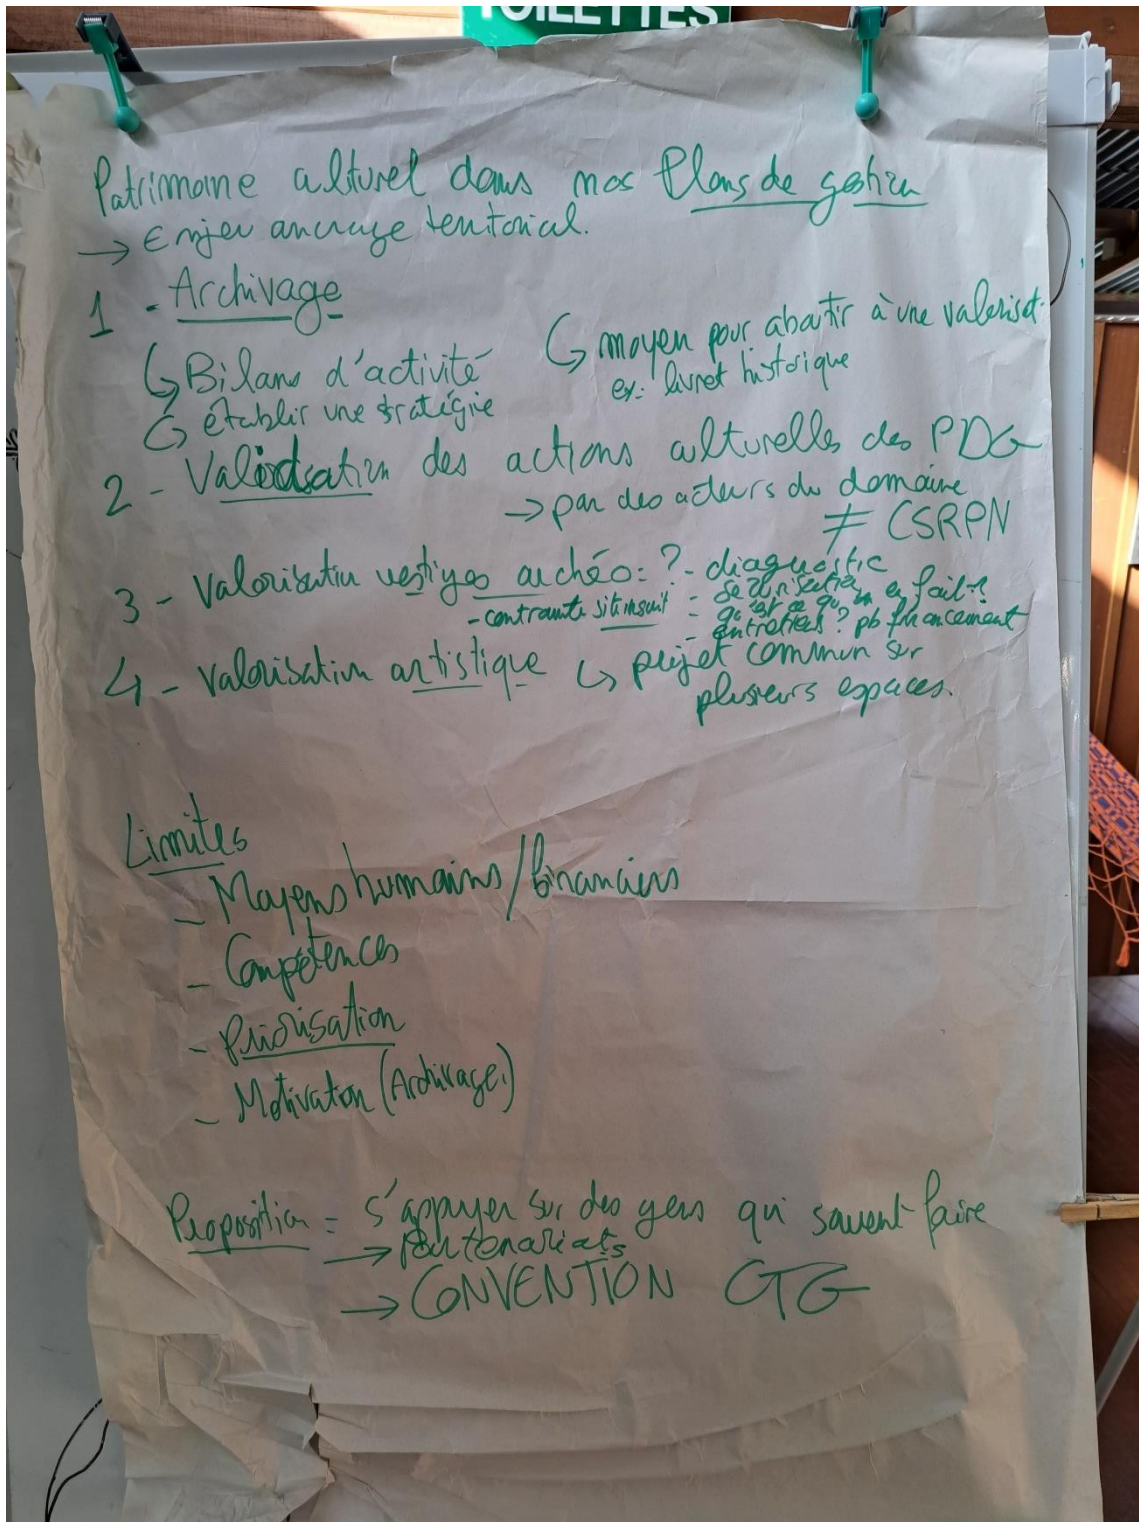 TOILETTES
Patrimoine culturel dans nos Plans de gestion
→ Enjeu ancrage territorial.
1 - Archivage
↳ Bilans d'activité
↳ établir une stratégie
↳ moyen pour aboutir à une valorisat.
ex: livret historique
2 - Validation des actions culturelles des PDG
→ par des acteurs du domaine
≠ CSRPN
3 - Valorisation vestiges archéo: ? - diagnostic
- contrainte site inscrit - sécurisation
- qu'est ce qu'on en fait?
- entretiens? pb financement
4 - Valorisation artistique ↳ projet commun sur
plusieurs espaces.
Limites
- Moyens humains/financiers
- Compétences
- Priorisation
- Motivation (Archivage.)
Proposition = s'appuyer sur des gens qui savent faire
→ Partenariats
→ CONVENTION CTG